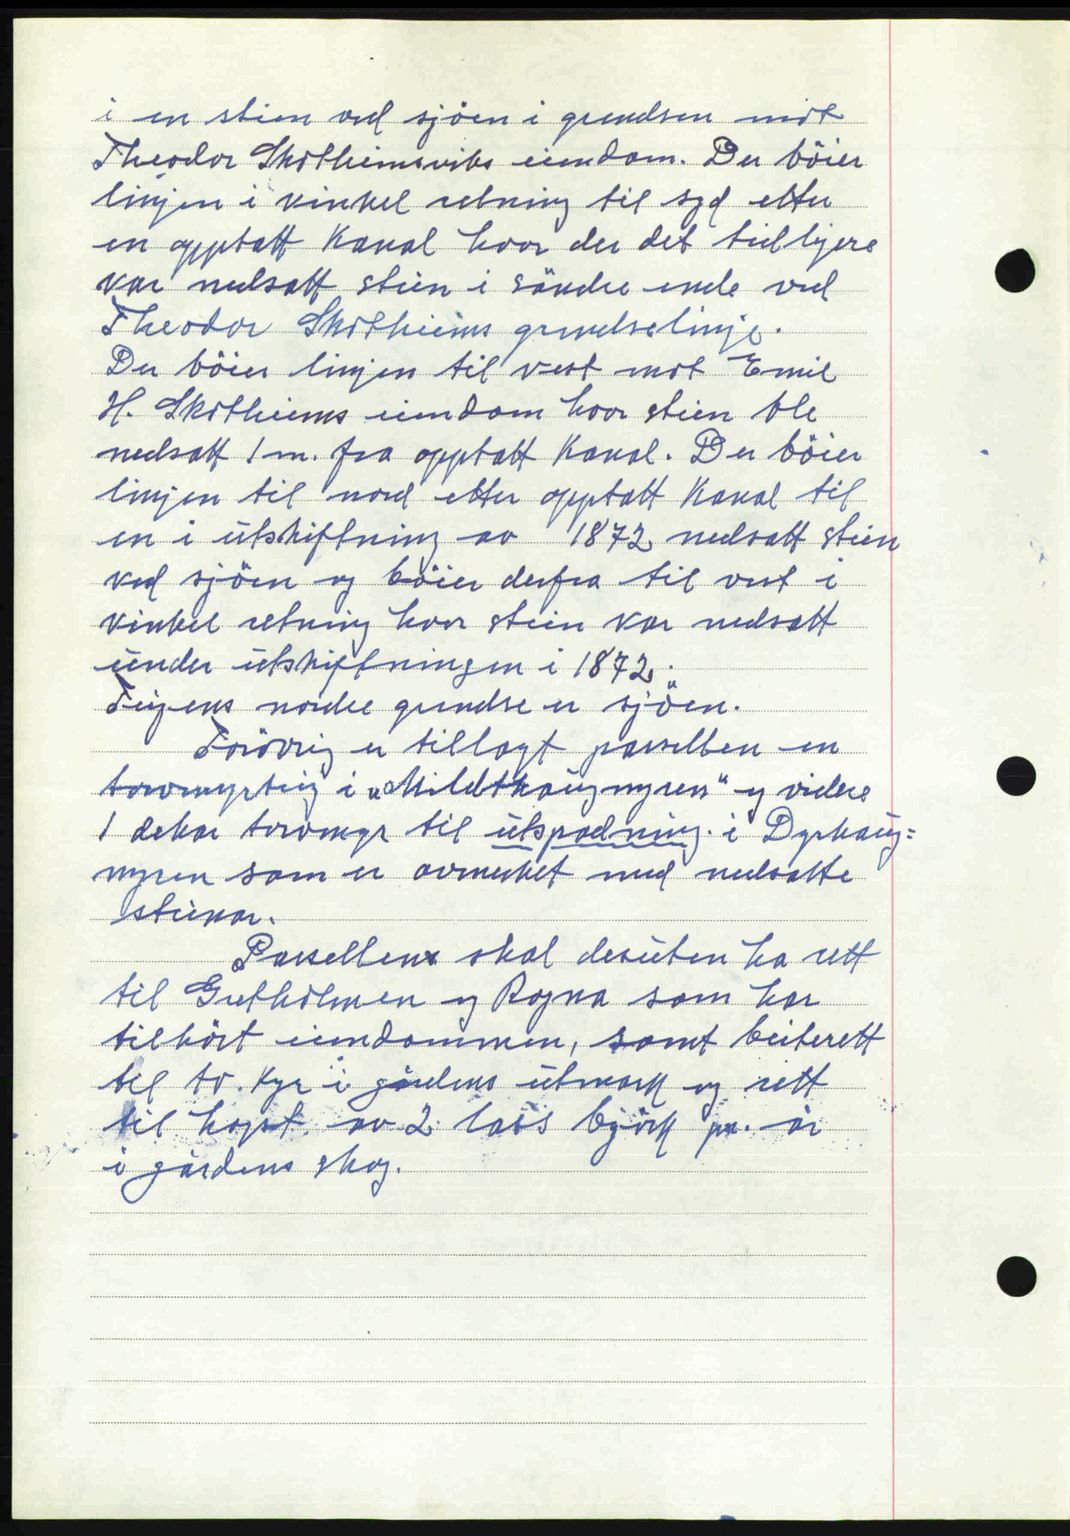 i en stien ved sjöen i grendsen mot
Theodor Skotheimsviks eiendom. Der böier
linjen i vinkel retning til syd etter
en opptatt Kanal hvor der det tidligere
var nedsatt stein i söndre ende ved
Theodor Skotheims grendselinje.
Der böier linjen til vest mot Emil
H. Skotheims eiendom hvor stien ble
nedsatt 1 m. fra opptatt Kanal. Der böier
linjen til nord etter opptatt Kanal til
en i utskiftning av 1872 nedsatt stien
ved sjöen og böier derfra til vest i
vinkel retning hvor stein var nedsatt
under utskiftningen i 1872.
Teigens nordre grendse er sjöen.
Forövrig er tillagt parsellen en
torvmyrteig i „Mildthaugmyren" og videre
1 dekar torvmyr til utspadning i Dyrhaug=
myren som er avmerket med nedsatte
steinar.
Parsellen skal desuten ha rett
til Gutholmen og Rogna som har
tilhört eiendommen, samt beiterett
til to. Kyr i gårdens utmark og rett
til hogst av 2 lass björk pr. år
i gårdens skog.